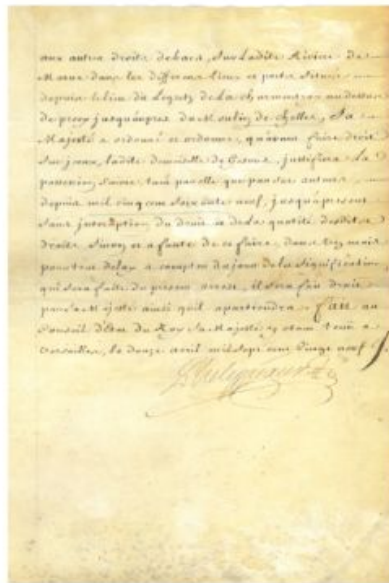 aux autres droits de bacs, Sur ladite Riviere de
Marne dans les differens lieux et ports Scitués
depuis le lieu de la charmentray au dessus
de precy jusqu'auprés du Moulin de Chelles, Sa
Majesté a ordonné et ordonne, qu'avant faire droit
Sur iceux, ladite demoiselle de justifiera la
possession Suivie, tant par elle que par Ses auteurs
depuis mil cinq cent Soixante neuf, jusqu'a present
Sans interruption du droit et de la quotité desdits
droits, Sinon et a faute de ce faire, dans trois mois
pour tout delay a compter du jour de la Signification
qui sera faite du present arrest, il sera fait droit
par Sa Majesté ainsi qu'il apartiendra. fait au
Conseil d'Etat du Roy, Sa Majesté y etant tenu a
Versailles, le douze avril mil sept cent vingt neuf